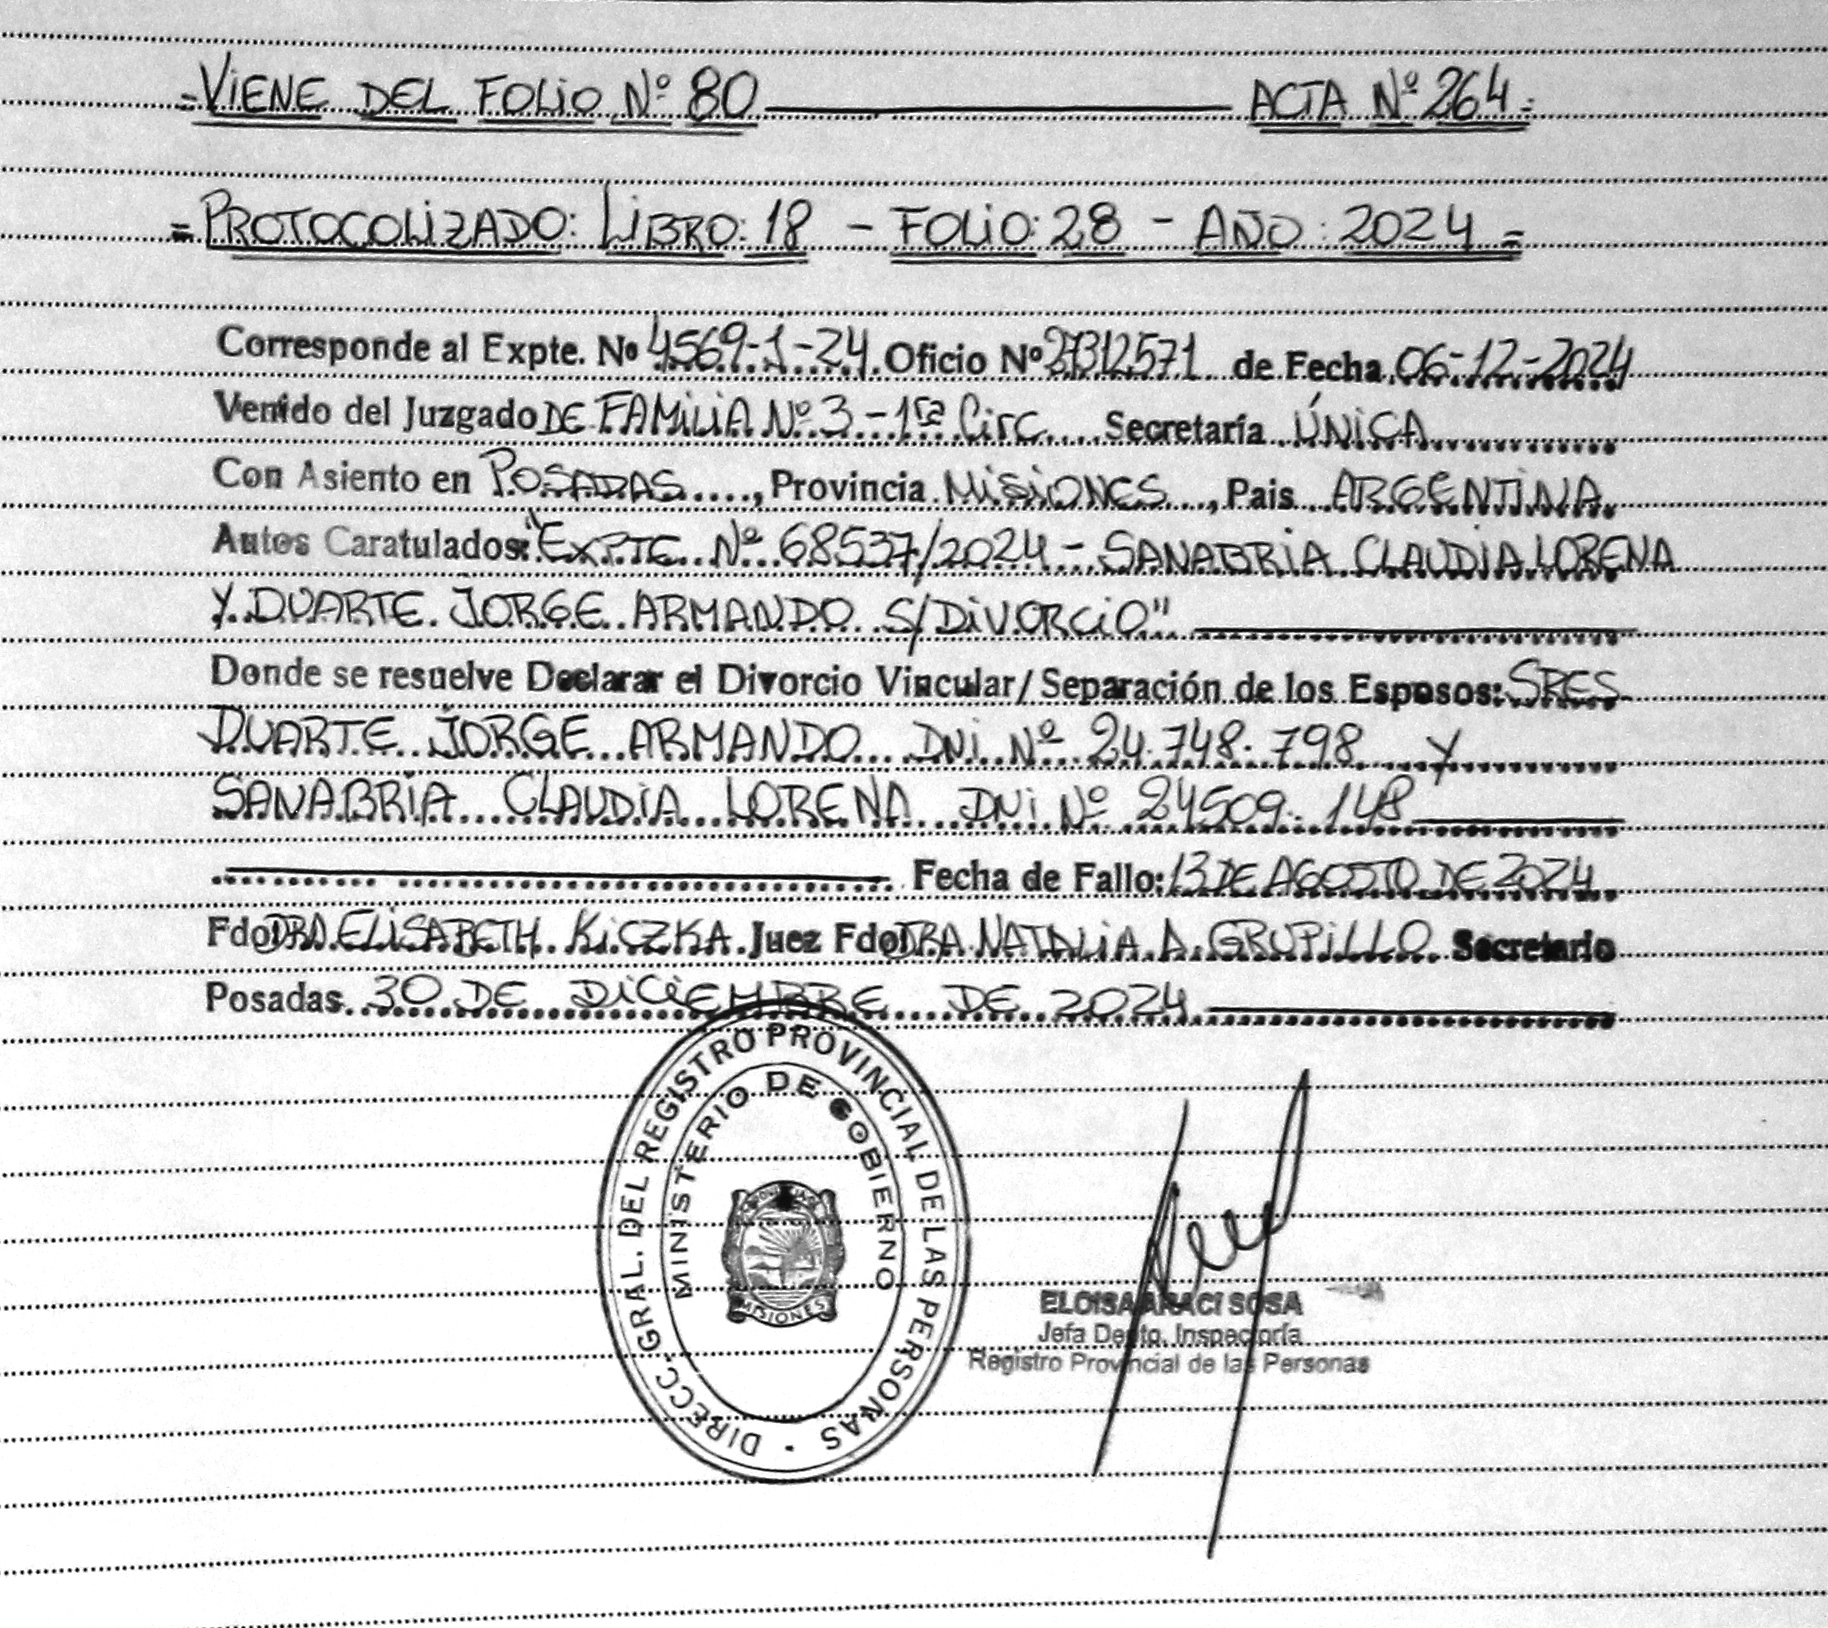 =VIENE DEL FOLIO Nº 80 ACTA Nº 264=
=PROTOCOLIZADO: LIBRO: 18 - FOLIO: 28 - AÑO: 2024=
Corresponde al Expte. Nº 4569-1-24. Oficio Nº 27312571 de Fecha 06-12-2024
Venido del Juzgado DE FAMILIA Nº 3 - 1ra Circ. Secretaría ÚNICA
Con Asiento en POSADAS, Provincia MISIONES, Pais ARGENTINA
Autos Caratulados: "EXPTE Nº 68537/2024 - SANABRIA CLAUDIA LORENA
Y DUARTE JORGE ARMANDO S/DIVORCIO"
Donde se resuelve Declarar el Divorcio Vincular/Separación de los Esposos: SRES
DUARTE JORGE ARMANDO DNI Nº 24.748.798 Y
SANABRIA CLAUDIA LORENA DNI Nº 24509.148
Fecha de Fallo: 13 DE AGOSTO DE 2024
Fdo DRA ELISABETH KICZKA Juez Fdo DRA NATALIA A. GRUPILLO Secretario
Posadas 30 DE DICIEMBRE DE 2024
DIRECC. GRAL. DEL REGISTRO PROVINCIAL DE LAS PERSONAS
MINISTERIO DE GOBIERNO
MISIONES
ELOISA ARACI SOSA
Jefa Depto. Inspectoría
Registro Provincial de las Personas